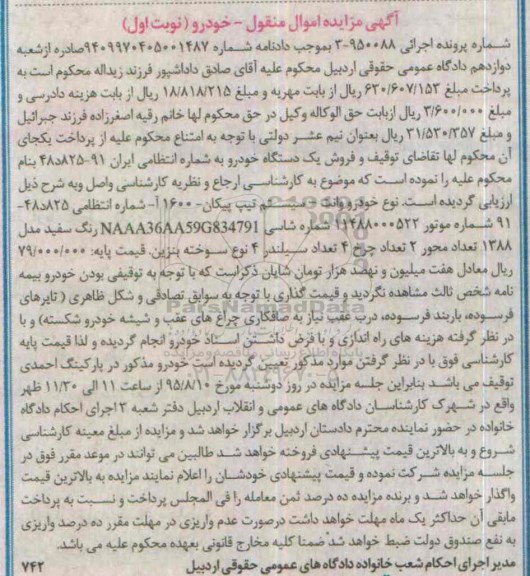 آگهی مزایده اموال منقول - خودرو (نوبت اول)
شماره پرونده اجرائی ۹۵۰۰۸۸-۳ بموجب دادنامه شماره ۹۴۰۹۹۷۰۴۰۵۰۰۱۴۸۷صادره ازشعبه
دوازدهم دادگاه عمومی حقوقی اردبیل محکوم علیه آقای صادق داداشپور فرزند زیداله محکوم است به
پرداخت مبلغ ۶۳۰/۶۰۷/۱۵۳ ریال از بابت مهریه و مبلغ ۱۸/۸۱۸/۲۱۵ ریال از بابت هزینه دادرسی و
مبلغ ۳/۶۰۰/۰۰۰ ریال ازبابت حق الوکاله وکیل در حق محکوم لها خانم رقیه اصغرزاده فرزند جبرائیل
و مبلغ ۳۱/۵۳۰/۳۵۷ ریال بعنوان نیم عشر دولتی با توجه به امتناع محکوم علیه از پرداخت یکجای
آن محکوم لها تقاضای توقیف و فروش یک دستگاه خودرو به شماره انتظامی ایران ۹۱-۸۲۵د۴۸ بنام
محکوم علیه را نموده است که موضوع به کارشناسی ارجاع و نظریه کارشناسی واصل وبه شرح ذیل
ارزیابی گردیده است. نوع خودرو وانت تیپ پیکان- ۱۶۰۰ آ- شماره انتظامی ۸۲۵د۴۸-
۹۱ شماره موتور ۱۱۴۸۸۰۰۰۵۲۲ شماره شاسی NAAA36AA59G834791 رنگ سفید مدل
۱۳۸۸ تعداد محور ۲ تعداد چرخ ۴ تعداد سیلندر ۴ نوع سوخته بنزین. قیمت پایه: ۷۹/۰۰۰/۰۰۰
ریال معادل هفت میلیون و نهصد هزار تومان شایان ذکراست که با توجه به توقیفی بودن خودرو بیمه
نامه شخص ثالث مشاهده نگردید و قیمت گذاری با توجه به سوابق تصادفی و شکل ظاهری ( تایرهای
فرسوده، باربند فرسوده، درب عقب نیاز به صافکاری چراغ های عقب و شیشه خودرو شکسته) و با
در نظر گرفته هزینه های راه اندازی و با فرض داشتن اسناد خودرو انجام گردیده و لذا قیمت پایه
کارشناسی فوق با در نظر گرفتن موارد مذکور تعیین گردیده است خودرو مذکور در پارکینگ احمدی
توقیف می باشد بنابراین جلسه مزایده در روز دوشنبه مورخ ۹۵/۸/۱۰ از ساعت ۱۱ الی ۱۱/۳۰ ظهر
واقع در شهرک کارشناسان دادگاه های عمومی و انقلاب اردبیل دفتر شعبه ۳ اجرای احکام دادگاه
خانواده در حضور نماینده محترم دادستان اردبیل برگزار خواهد شد و مزایده از مبلغ معینه کارشناسی
شروع و به بالاترین قیمت پیشنهادی فروخته خواهد شد طالبین می توانند در موعد مقرر فوق در
جلسه مزایده شرکت نموده و قیمت پیشنهادی خودشان را اعلام نمایند مزایده به بالاترین قیمت
واگذار خواهد شد و برنده مزایده ده درصد ثمن معامله را فی المجلس پرداخت و نسبت به پرداخت
مابقی آن حداکثر یک ماه مهلت خواهد داشت درصورت عدم واریزی در مهلت مقرر ده درصد واریزی
به نفع صندوق دولت ضبط خواهد شد ضمنا کلیه مخارج قانونی بعهده محکوم علیه می باشد.
مدیر اجرای احکام شعب خانواده دادگاه های عمومی حقوقی اردبیل ۷۴۲